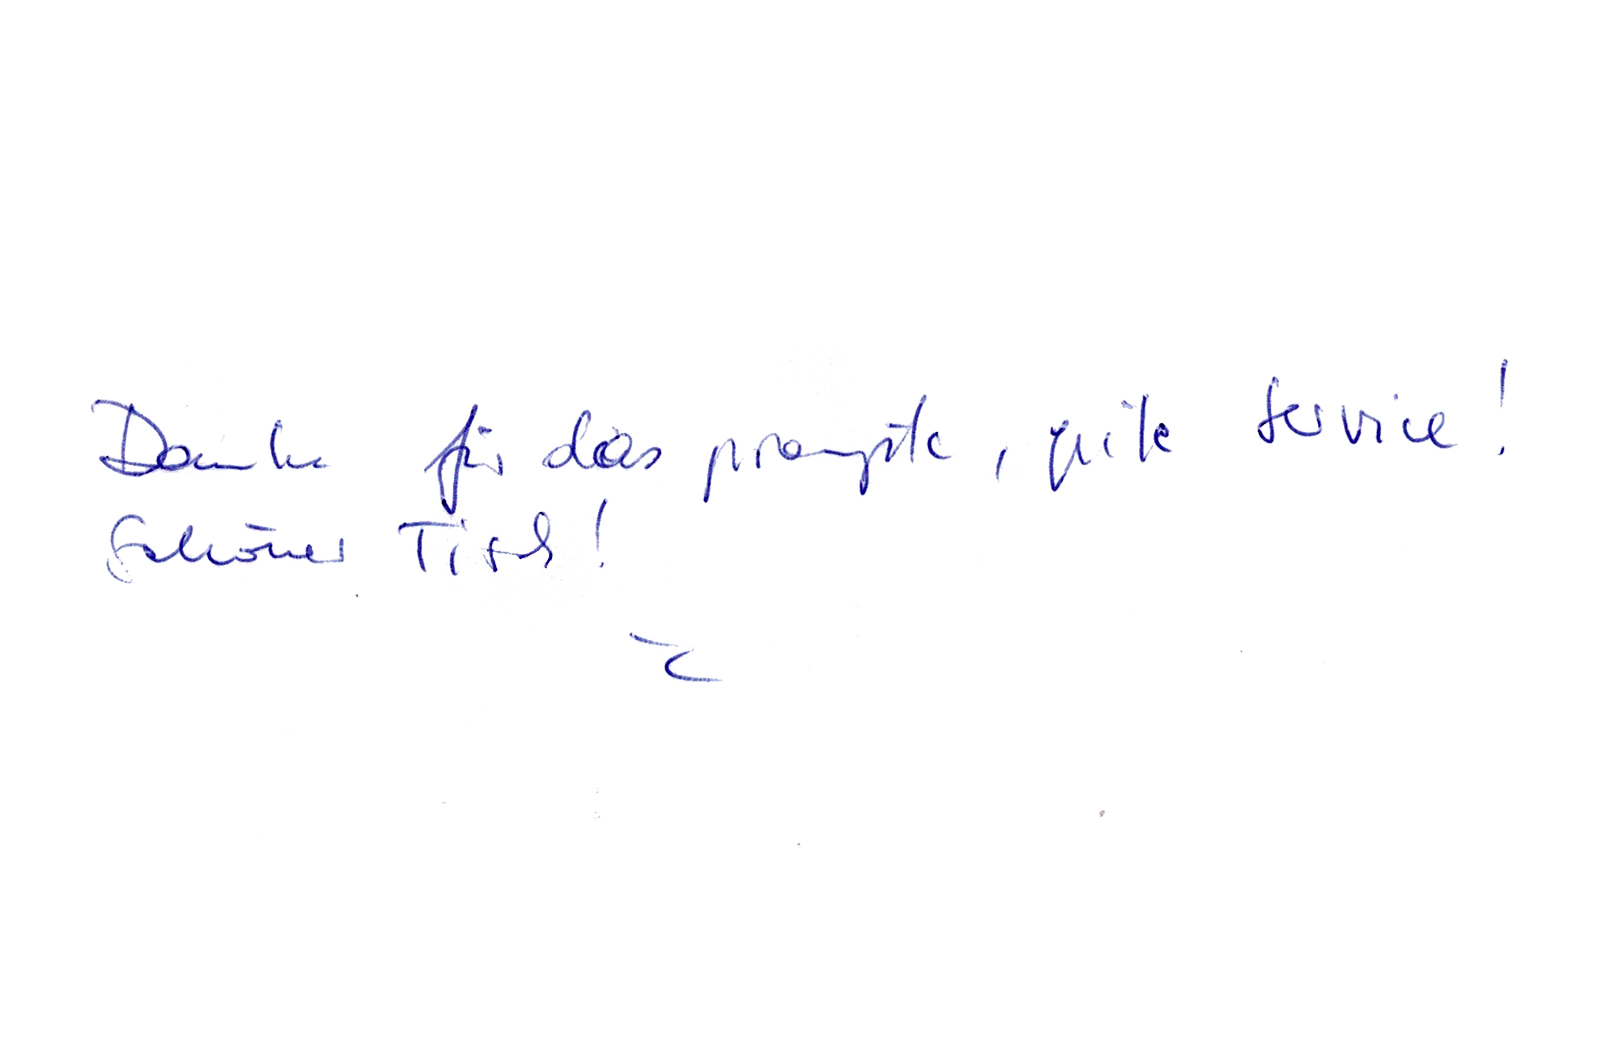 Danke für das prompte, gute Service!
Schöner Tisch!